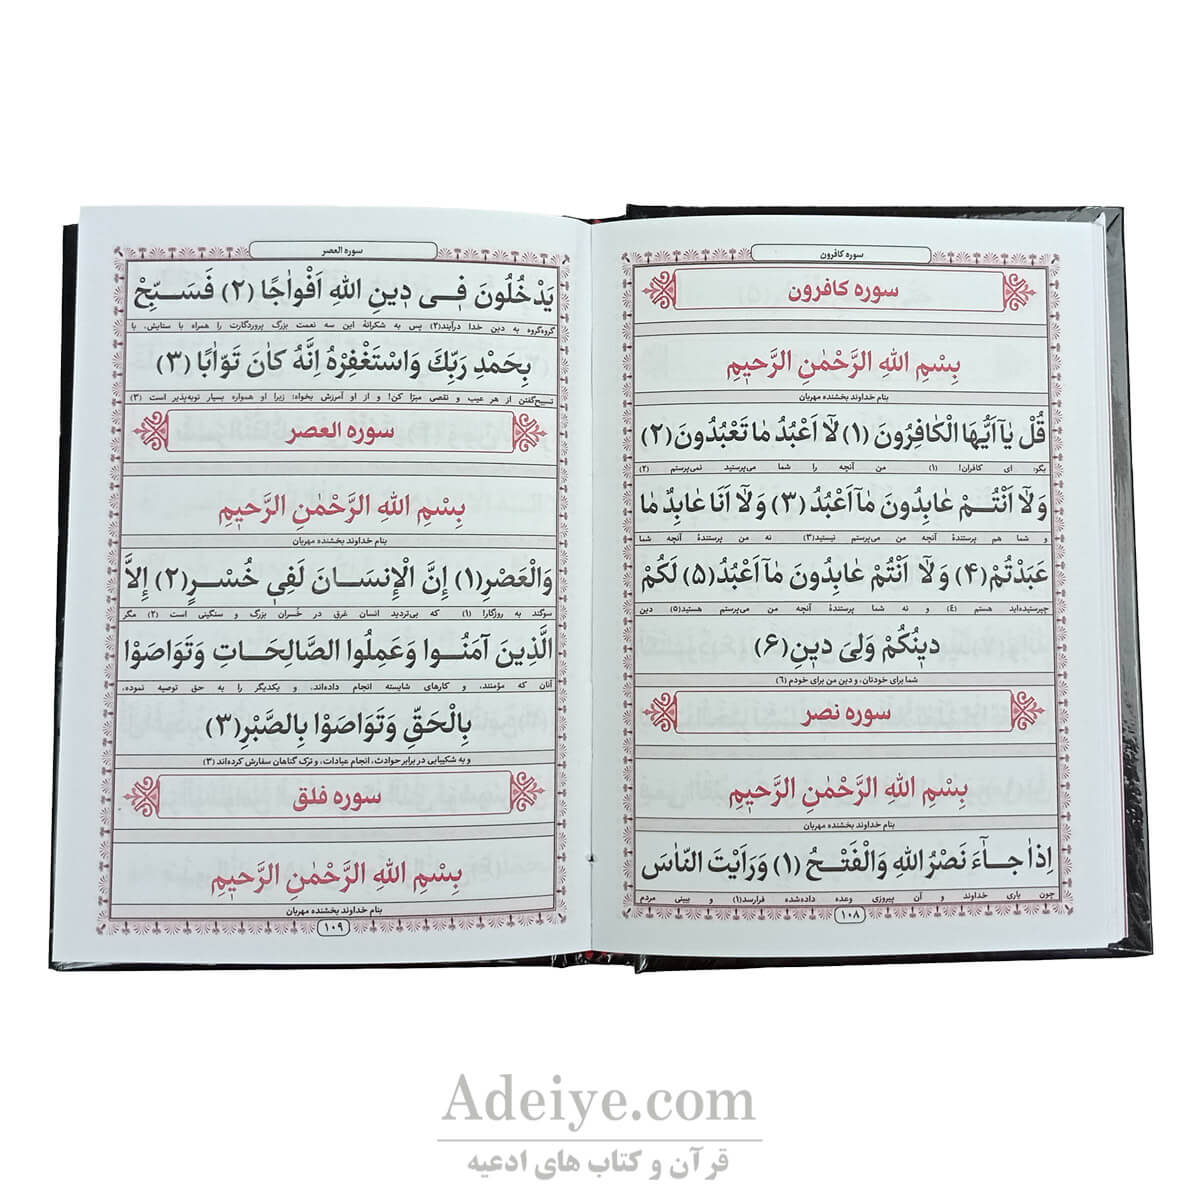 سوره کافرون
سوره کافرون
بِسْمِ اللهِ الرَّحْمٰنِ الرَّحیٖمِ
بنام خداوند بخشنده مهربان
قُلْ یٰٓا اَیُّهَا الْکٰافِرُونَ (۱) لٰٓا اَعْبُدُ مٰا تَعْبُدُونَ (۲)
بگو: ای کافران! (۱) من آنچه را شما می‌پرستید نمی‌پرستم (۲)
وَ لٰٓا اَنْتُـمْ عٰابِدُونَ مٰٓا اَعْبُدُ (۳) وَ لٰٓا اَنَا عٰابِدٌ مٰا
و شما هم پرستندهٔ آنچه من می‌پرستم نیستید(۳) نه من پرستندهٔ آنچه شما
عَبَدْتُمْ (۴) وَ لٰٓا اَنْتُمْ عٰابِدُونَ مٰٓا اَعْبُدُ (۵) لَکُمْ
می‌پرستیده‌اید هستم (٤) و نه شما پرستندهٔ آنچه من می‌پرستم هستید(۵) دین
دیٖنُکُمْ وَلِیَ دیٖنِ (۶)
شما برای خودتان، و دین من برای خودم (۶)
سوره نصر
بِسْمِ اللهِ الرَّحْمٰنِ الرَّحیٖمِ
بنام خداوند بخشنده مهربان
اِذٰا جٰـٓاءَ نَصْرُ اللهِ وَالْفَتْـحُ (۱) وَ رَاَیْتَ النّٰاسَ
چون یاری خداوند و آن پیروزی وعده داده‌شده فرارسد(۱) و ببینی مردم
۱۰۸
سوره العصر
یَدْخُلُونَ فِـی دٖینِ اللهِ اَفْوٰاجًا (۲) فَسَـبِّحْ
گروه‌گروه به دین خدا درآیند(۲) پس به شکرانهٔ این سه نعمت بزرگ پروردگارت را همراه با ستایش، با
بِحَمْدِ رَبِّكَ وَاسْتَغْفِرْهُ اِنَّهُ کٰانَ تَوّٰابًا (۳)
تسبیح‌گفتن از هر عیب و نقصی مبرّا کن! و از او آمرزش بخواه؛ زیرا او همواره بسیار توبه‌پذیر است (۳)
سوره العصر
بِسْمِ اللهِ الرَّحْمٰنِ الرَّحیٖمِ
بنام خداوند بخشنده مهربان
وَالْعَصْرِ(۱) إِنَّ الْإِنْسَـانَ لَفِي خُسْـرٍ(۲) إِلاَّ
سوگند به روزگار! (۱) که بی‌تردید انسان غرق در خُسران بزرگ و سنگینی است (۲) مگر
الَّذِينَ آمَنُـوا وَعَمِلُوا الصَّالِحَـاتِ وَتَوَاصَوْا
آنان که مؤمنند، و کارهای شایسته انجام داده‌اند، و یکدیگر را به حق توصیه نموده،
بِالْحَقِّ وَتَوَاصَوْا بِالصَّبْرِ(۳)
و به شکیبایی در برابر حوادث، انجام عبادات، و ترک گناهان سفارش کرده‌اند (۳)
سوره فلق
بِسْمِ اللهِ الرَّحْمٰنِ الرَّحیٖمِ
بنام خداوند بخشنده مهربان
۱۰۹
Adeiye.com
قرآن و کتاب های ادعیه